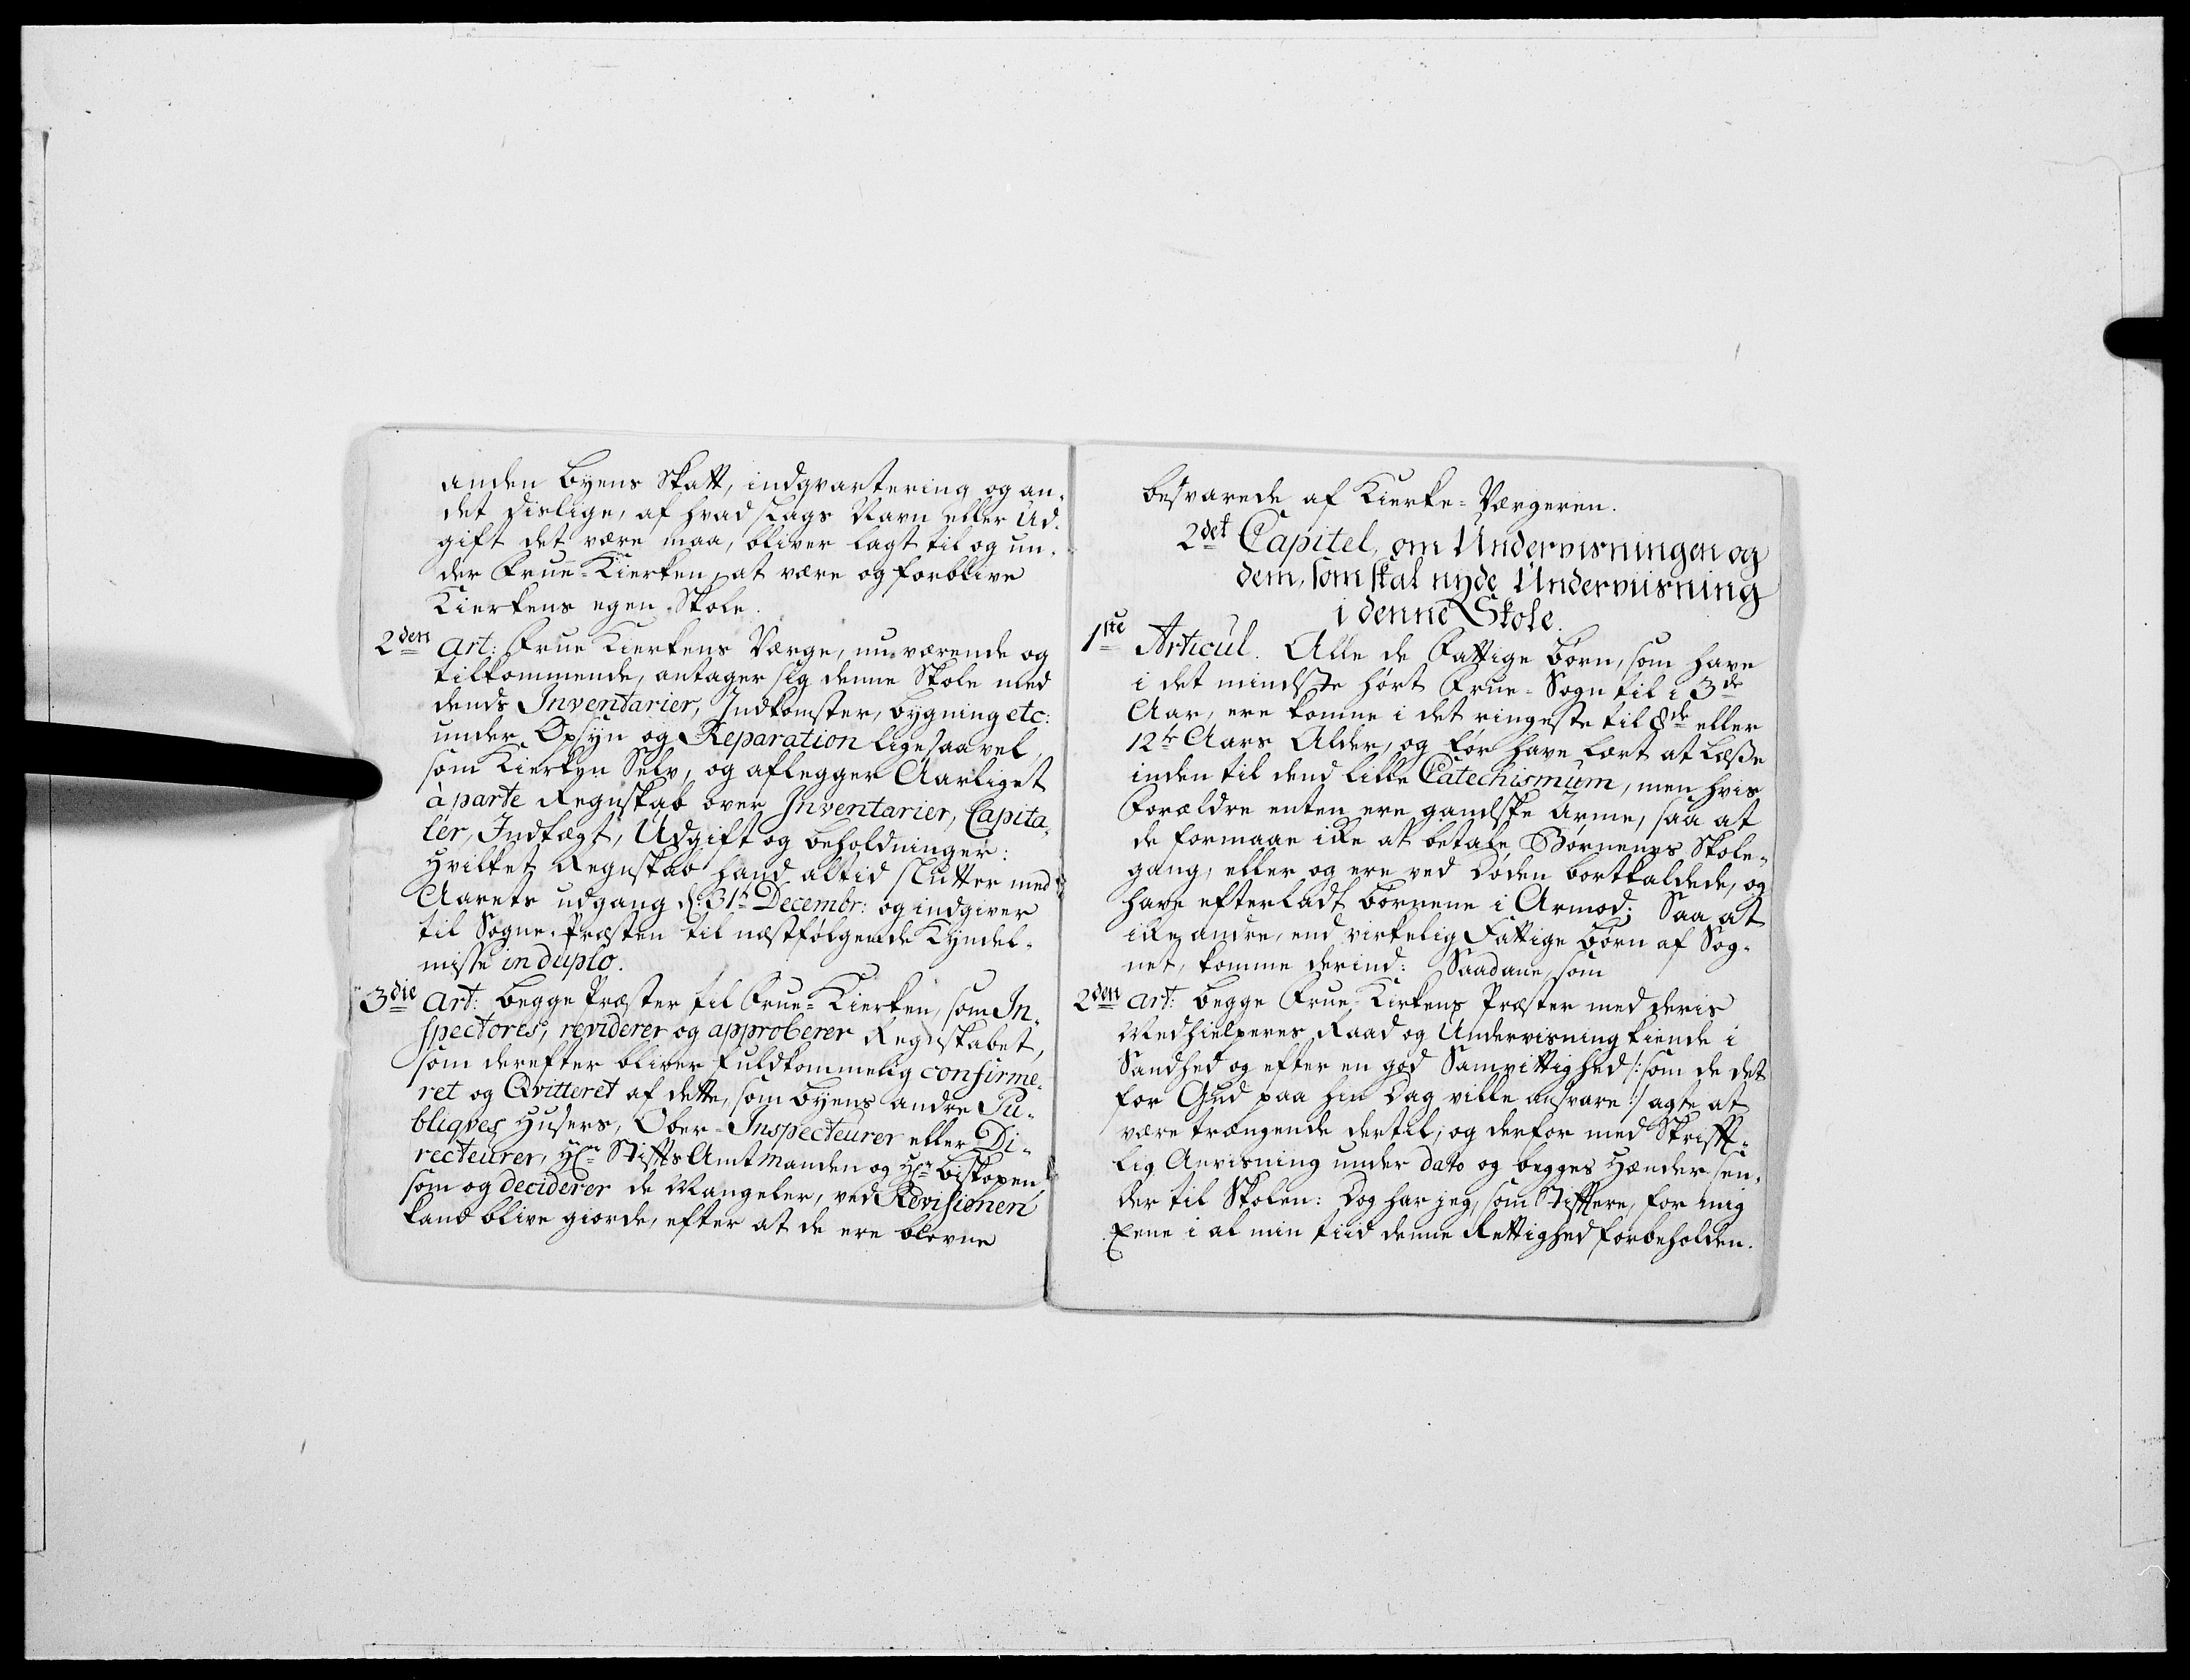 anden Byens Skatt, indqvartering og an-
det dislige, af hvad slags Navn eller Ud-
gift det være maa, bliver lagt til og un-
der Frue-Kierken, at være og forblive
Kierkens egen Skole.
2den Art: Frue Kierkens Værge, nuværende og
tilkommende, antager sig denne Skole med
dends Inventarier, Indkomster, bygning etc:
under Opsyn og Reparation ligesaavel,
som Kierken Selv, og aflegger Aarliget
à parte Regnskab over Inventarier, Capita-
ler, Indtægt, Udgift og beholdninger:
Hvilket Regnskab hand altid slutter med
Aarets udgang d: 31te Decembr: og indgiver
til Sogne-Præsten til næstfølgende Kyndel-
misse in duplo.
3die Art: Begge Præster til Frue-Kierken, som In-
spectores, reviderer og approberer Regnskabet,
som derefter bliver fuldkommelig confirme-
ret og Qvitteret af dette, som byens andre Pu-
bliqves Husers, Ober-Inspecteurer eller Di-
recteurer, Hr: StifftsAmtmanden og Hr: Biskopen
som og deciderer de Mangeler, ved Revisionen
kand blive giorde, efter at de ere blevne
besvarede af Kierke-Værgeren.
2det Capitel, om Undervisningen og
dem, som skal nyde Underviisning
i denne Skole.
1ste Articul. Alle de Fattige Børn, som have
i det mindste hørt Frue-Sogn til i 3de
Aar, ere komne i det ringeste til 8de eller
12te Aars Alder, og før have lært at Læsse
inden til dend lille Catechismum, men hvis
Forældre enten ere gandske Arme, saa at
de formaae ikke at betale Børnenes Skole-
gang, eller og ere ved Døden bortkaldede, og
have efterladt børnene i Armod; Saa at
ikke andre, end virkelig Fattige Børn af Sog-
net, komme derind: Saadane, som
2den Art: Begge Frue-Kirkens Præster med deris
Medhielperes Raad og Undervisning kiende i
Sandhed og efter en god Samvittighed /: som de det
for Gud paa hin Dag ville ansvare :/ agte at
være trængende dertil, og derfor med Skrifft-
lig Anvisning under dato og begges Hænder sen-
der til Skolen: Dog har jeg, som Stifftere, for mig
Eene i al min tiid denne Rettighed forbeholden.